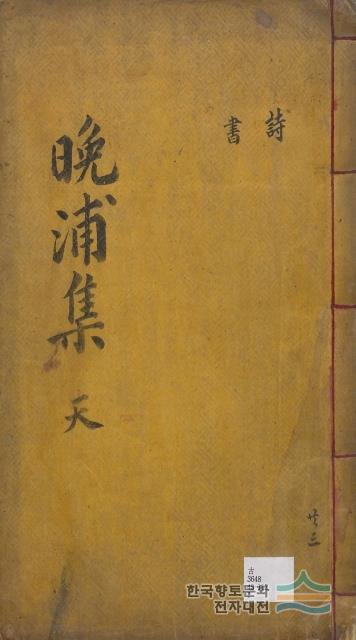 詩
書
晩浦集 天
共三
古
3648
한국향토문화
전자대전